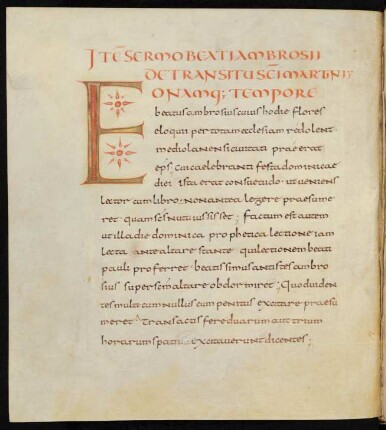 ITE SERMO BEATI AMBROSII
DE TRANSITU SCI MARTINI
EO NAMQ; TEMPORE
beatus ambrosius cuius hodie flores
eloquii per totam ecclesiam redolent
mediolanensi ciuitati praeerat
eps cui caelebranti festa dominicae
diei ista erat consuetudo ut ueniens
lector cum libro non antea legere praesume
ret quam scs nutu iussisset; factum est autem
ut illa die dominica prophetica lectione iam
lecta ante altare stante qui lectionem beati
pauli proferret beatissimus antistes ambro
sius super sem altare obdormiret; Quod uiden
tes multi cum nullus eum penitus excitare praesu
meret transactis fere duarum aut trium
horarum spatiis excitauerunt dicentes;